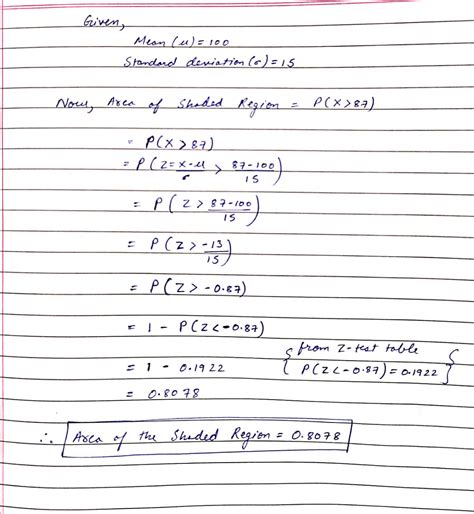 Given,
Mean (μ) = 100
Standard deviation (σ) = 15
Now, Area of Shaded Region = P(X>87)
= P(X>87)
= P(Z = x-μ/σ > 87-100/15)
= P(Z > 87-100/15)
= P(Z > -13/15)
= P(Z > -0.87)
= 1 - P(Z<-0.87)
= 1 - 0.1922 {from Z-test table P(Z<-0.87) = 0.1922}
= 0.8078
∴ Area of the Shaded Region = 0.8078